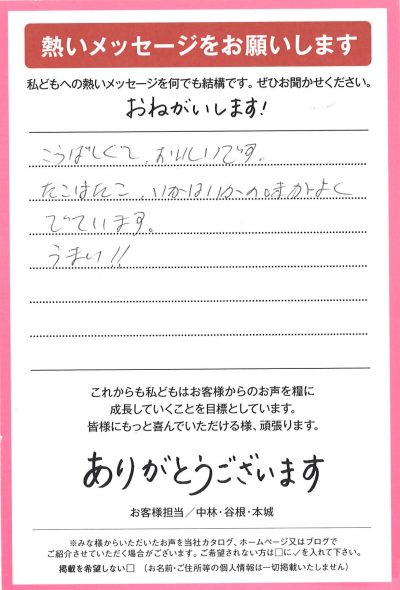 熱いメッセージをお願いします
私どもへの熱いメッセージを何でも結構です。ぜひお聞かせください。
おねがいします!
こうばしくて、おいしいです。
たこはたこ、いかはいかの味がよく
でています。
うまい!!
これからも私どもはお客様からのお声を糧に
成長していくことを目標としています。
皆様にもっと喜んでいただける様、頑張ります。
ありがとうございます
お客様担当/中林・谷根・本城
※みな様からいただいたお声を当社カタログ、ホームページ又はブログで
ご紹介させていただく場合がございます。ご希望されない方は□に✓を入れて下さい。
掲載を希望しない□ (お名前・ご住所等の個人情報は一切掲載いたしません)